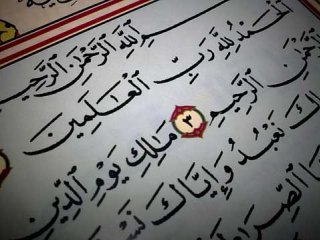 بِسْمِ ٱللَّهِ ٱلرَّحْمَٰنِ ٱلرَّحِيمِ
ٱلْحَمْدُ لِلَّهِ رَبِّ ٱلْعَٰلَمِينَ
ٱلرَّحْمَٰنِ ٱلرَّحِيمِ ٣ مَٰلِكِ يَوْمِ ٱلدِّينِ
ـاكَ نَعْبُدُ وَإِيَّاكَ نَسْـ
ـا ٱلصِّرَٰطَ